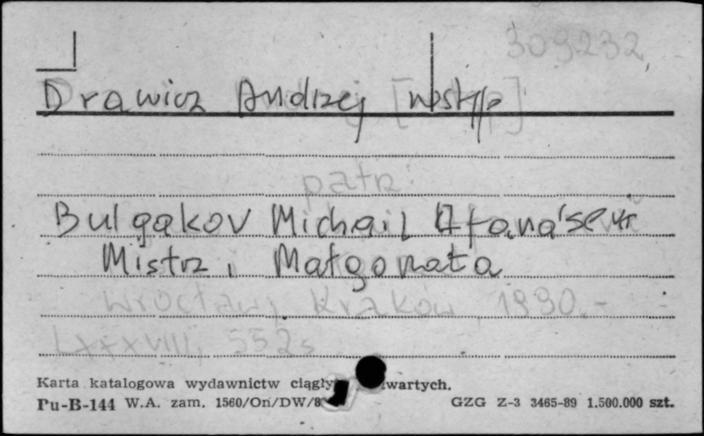 309232
Drawicz Andrzej [wstęp]
patrz:
Bulgakov Michail Afanas'evič
Mistrz i Małgorzata
Wrocław, Kraków, 1990.-
LXXXVIII, 552 s
Karta katalogowa wydawnictw ciągły wartych.
Pu-B-144 W.A. zam. 1560/Oń/DW/8 GZG Z-3 3465-89 1.500.000 szt.